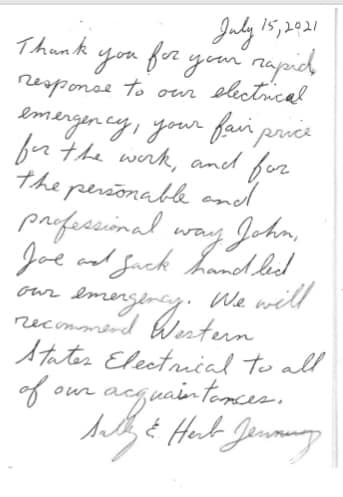 July 15, 2021
Thank you for your rapid
response to our electrical
emergency, your fair price
for the work, and for
the personable and
professional way John,
Joe and Jack handled
our emergency. We will
recommend Western
States Electrical to all
of our acquaintances.
Sally & Herb